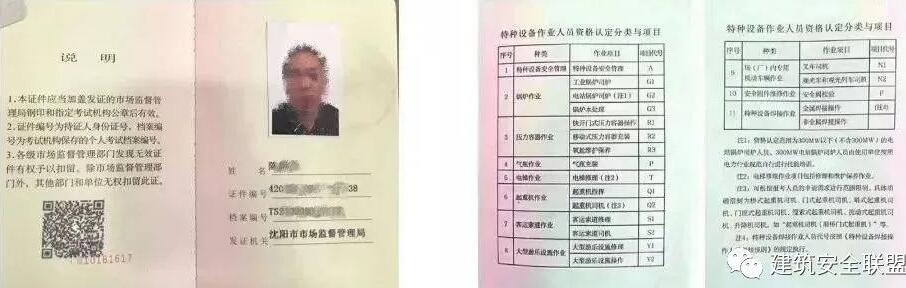 说 明
1.本证件应当加盖发证的市场监督管
理局钢印和指定考试机构公章后有效。
2.证件编号为持证人身份证号，档案编
号为考试机构保存的个人考试档案编号。
3.各级市场监督管理部门发现无效证
件有权予以扣留。除市场监督管理部
门外，其他部门和单位无权扣留此证。
10181617
姓 名 陈
证件编号 420 38
档案编号
发证机关 沈阳市市场监督管理局
特种设备作业人员资格认定分类与项目
序号 种类 作业项目 项目代号
1 特种设备安全管理 特种设备安全管理 A
2 锅炉作业 工业锅炉司炉 G1
电站锅炉司炉（注1） G2
锅炉水处理 G3
3 压力容器作业 快开门式压力容器操作 R1
移动式压力容器充装 R2
氧舱维护保养 R3
4 气瓶作业 气瓶充装 P
5 电梯作业 电梯修理（注2） T
6 起重机作业 起重机指挥 Q1
起重机司机（注3） Q2
7 客运索道作业 客运索道修理 S1
客运索道司机 S2
8 大型游乐设施作业 大型游乐设施修理 Y1
大型游乐设施操作 Y2
特种设备作业人员资格认定分类与项目
序号 种类 作业项目 项目代号
9 场（厂）内专用机动车辆作业 叉车司机 N1
观光车和观光列车司机 N2
10 安全附件维修作业 安全阀校验 F
11 特种设备焊接作业 金属焊接操作 (注4)
非金属焊接操作
注1：资格认定范围为300MW以下（不含300MW）的电
站锅炉司炉人员，300MW电站锅炉司炉人员由使用单位按照
电力行业规范自行进行技能培训。
注2：电梯修理作业项目包括修理和维护保养作业。
注3：可根据报考人员的申请需求进行范围限制，具体明
确限制为桥式起重机司机、门式起重机司机、塔式起重机司
机、门座式起重机司机、缆索式起重机司机、流动式起重机司
机、升降机司机。如“起重机司机（限桥门式起重机）”等。
注4：特种设备焊接作业人员代号按照《特种设备焊接操作
的规定执行。
建筑安全联盟